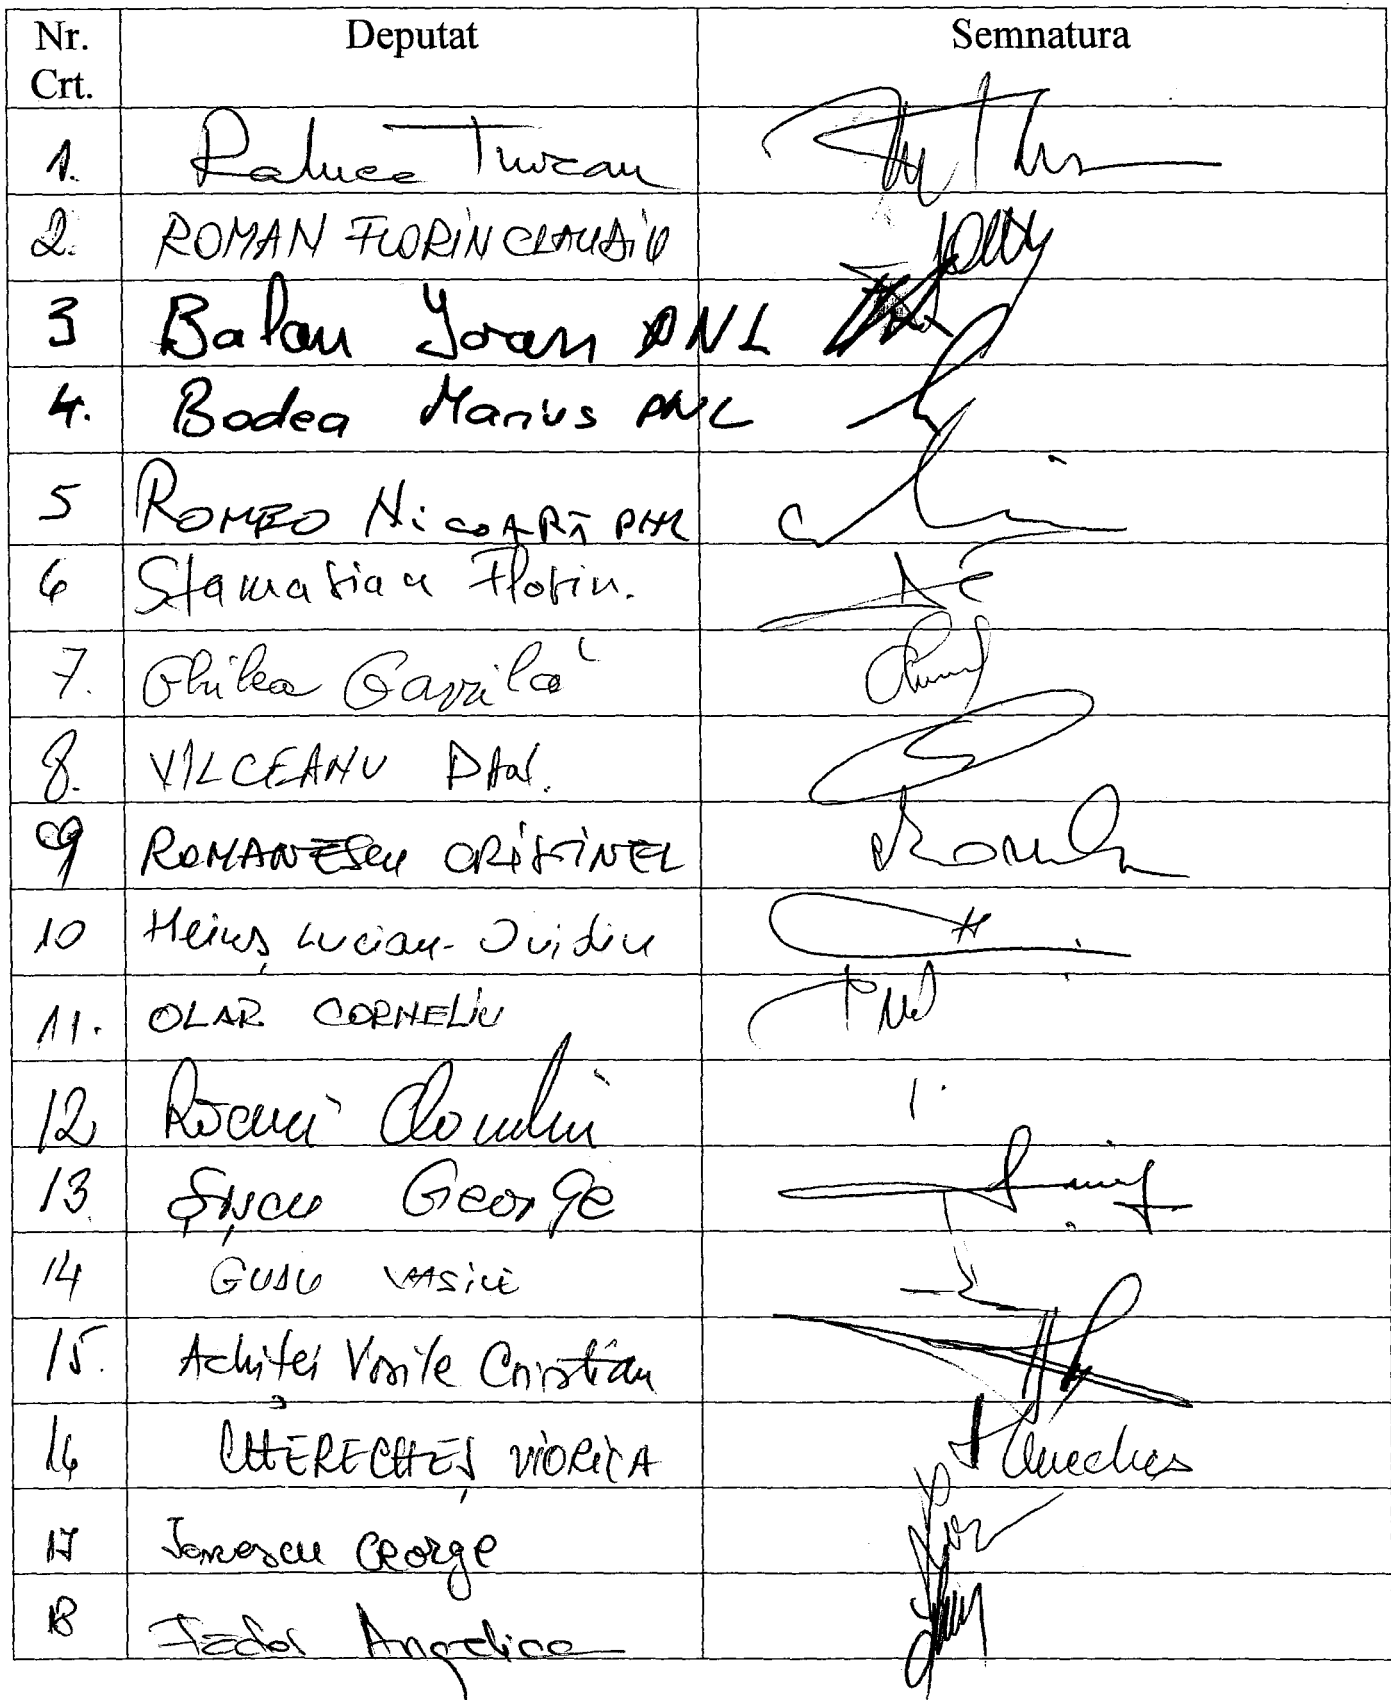 Nr. Crt. Deputat Semnatura
1. Raluca Turcan
2. ROMAN FLORIN CLAUDIU
3 Balan Ioan PNL
4. Bodea Marius PNL
5 ROMEO NICOARĂ PNL
6 Stamatian Florin.
7. Ghilea Gavrilă
8. VILCEANU DAN.
9 ROMANESCU CRISTINEL
10 Heiuș Lucian-Ovidiu
11. OLAR CORNELIU
12
13 Șișcu George
14 GUDU VASILE
15. Achiței Vasile Cristian
16 CHERECHEȘ VIORICA
17 Ionescu George
18 Fador Angelica